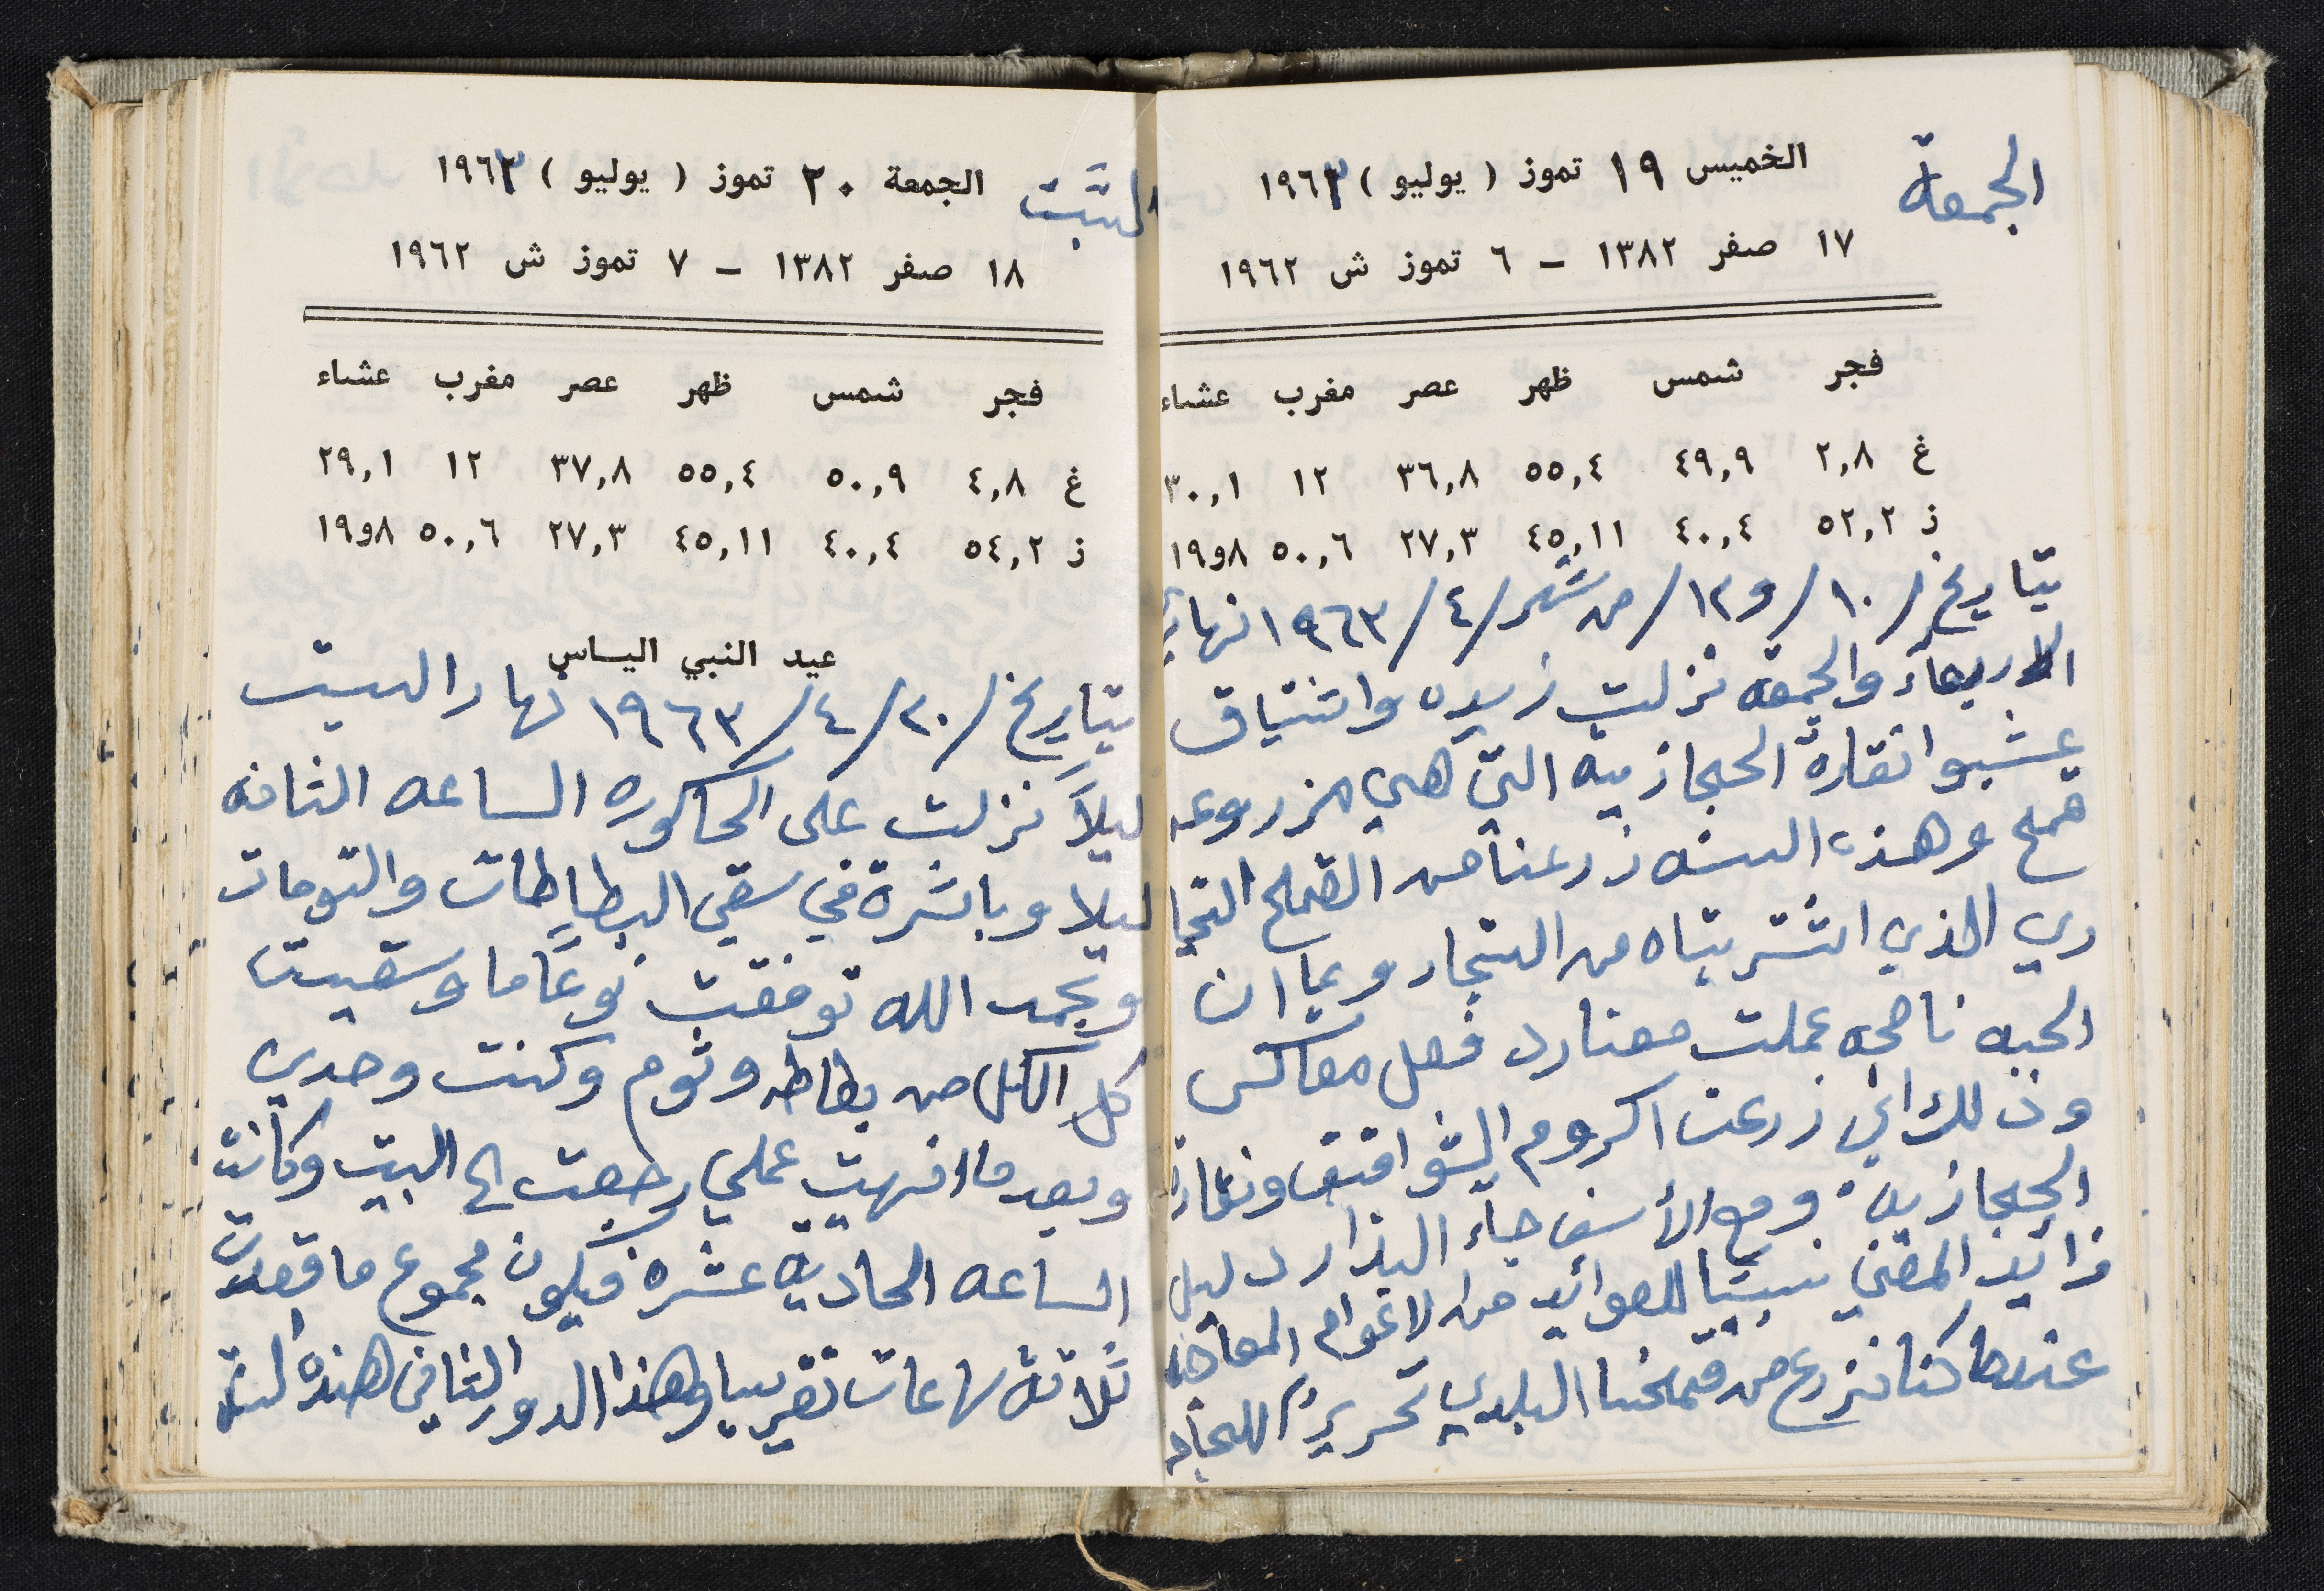 الجمعة
الخميس ١٩ تموز ( يوليو ) ١٩٦٣
١٧ صفر ١٣٨٢ – ٦ تموز ش ١٩٦٢
فجر شمس ظهر عصر مغرب عشاء
غ ٢,٨ ٤٩,٩ ٥٥,٤ ٣٦,٨ ١٢ ٣٠,١
ز ٥٢,٢ ٤٠,٤ ٤٥,١١ ٢٧,٣ ٥٠,٦ ٨و١٩
بتاريخ /١٠/و١٢/ من شهر /٤/ ١٩٦٣ نهار
الاربعاء والجمعه نزلت زبيده واشتياق
عشبوا نقارة الحجازيه التي هي مزروعه
قمح وهذه السنه زرعنا من القمح التجا
ري الذي اشتريناه من التجار وبما ان
الحبه ناصحه عملت معنا رد فعل معاكس
وذلك اني زرعت اكروم الشواقيق ونقارة
الحجازيه ومع الأسف جاء البذار دليل
زايد المفني نسبتا للعوائد من الاعوام الماضيه
عندما كنا نزرع من قمحنا البلدي تحريرا
السَبت
الجمعة ٢٠ تموز ( يوليو ) ١٩٦٣
١٨ صفر ١٣٨٢ – ٧ تموز ش ١٩٦٢
فجر شمس ظهر عصر مغرب عشاء
غ ٤,٨ ٥٠,٩ ٥٥,٤ ٣٧,٨ ١٢ ٢٩,١
ز ٥٤,٢ ٤٠,٤ ٤٥,١١ ٢٧,٣ ٥٠,٦ ٨و١٩
عيد النبي الياس
بتاريخ /٢٠/ ٤/ ١٩٦٣ نهار السبت
ليلاً نزلت على الحاكوره الساعه الثامنه
ليلا وباشرة في سقي البطاطات والتومات
وبحمد الله توفقت نوعاً ما وسقيت
كل الكل من بطاطه وثوم وكنت وحدي
وبعد ما انهيت عملي رجعت الى البيت وكانت
الساعه الحاديه عشره فيكون مجموع ما قعدت
ثلاثة ساعات تقريبا وهذا الدور الثاني هذه السنه